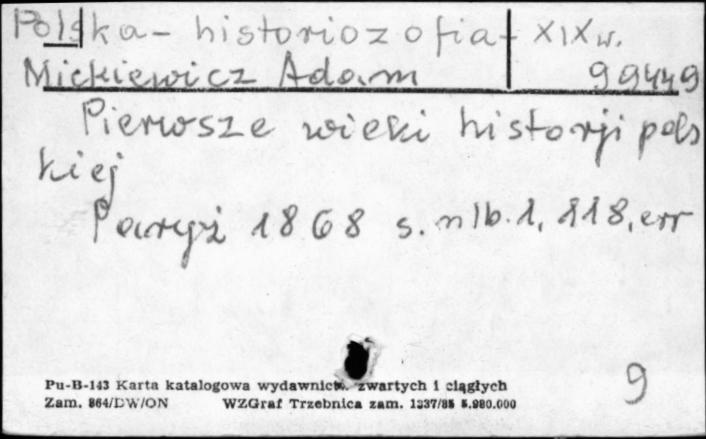 Polska - historiozofia - XIX w.
Mickiewicz Adam 99449
Pierwsze wieki historji pols
kiej
Paryż 1868 s. nlb. 1, 118, err
9
Pu-B-143 Karta katalogowa wydawnictw. zwartych i ciągłych
Zam. 864/DW/ON WZGraf Trzebnica zam. 1337/85 5.980.000